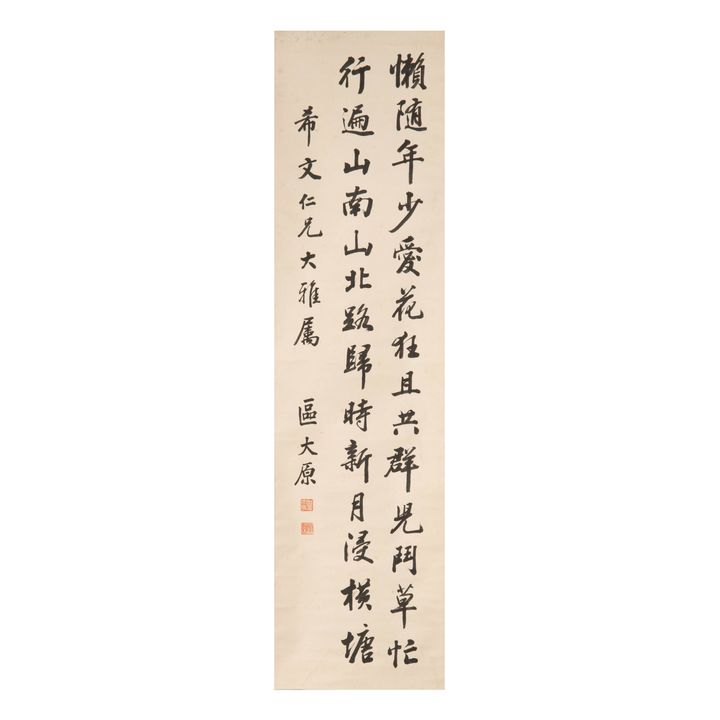 懶隨年少愛花狂且共群兒鬥草忙
行遍山南山北路歸時新月浸橫塘
希文仁兄大雅屬
區大原